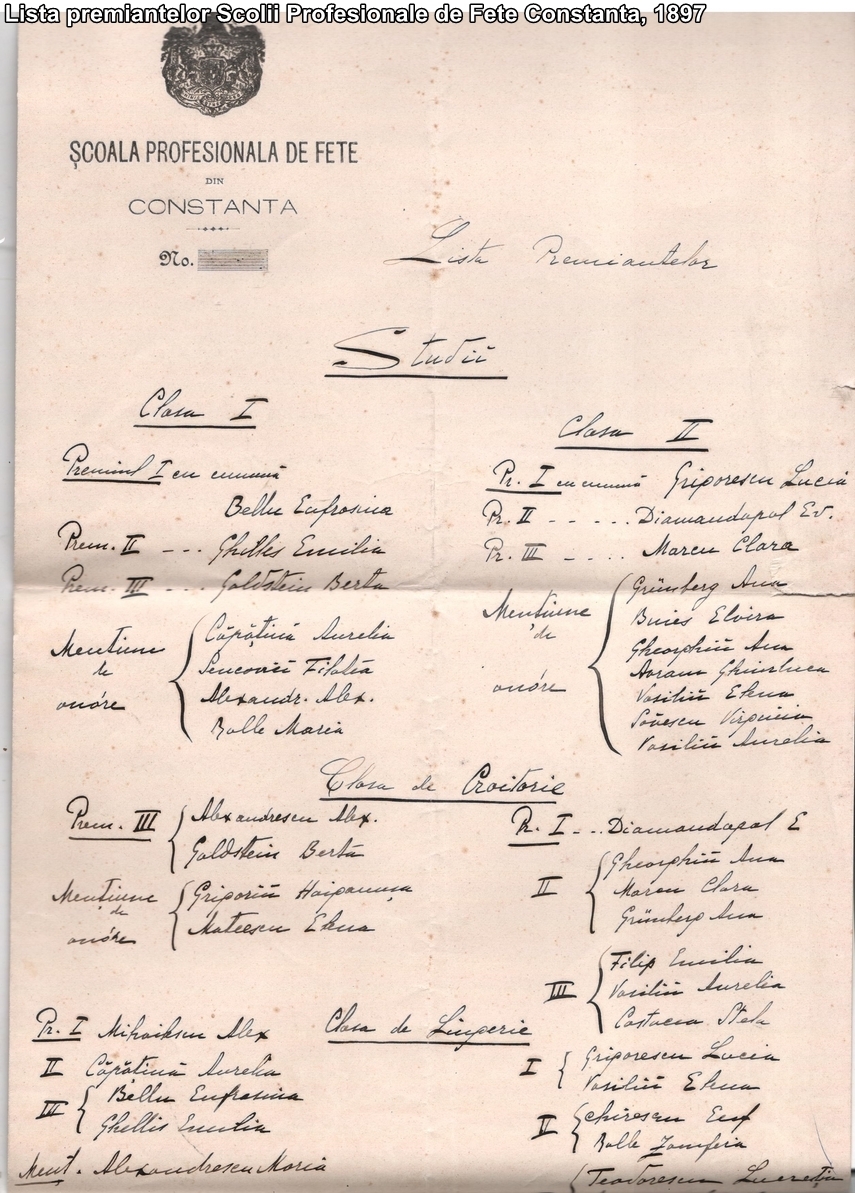 Lista premiantelor Scolii Profesionale de Fete Constanta, 1897
ȘCOALA PROFESIONALA DE FETE
DIN
CONSTANTA
No.
Lista Premiantelor
Studii
Clasa I
Premiul I cu cunună
Bellu Eufrosina
Prem. II - - - Ghillis Emilia
Prem. III - - - Goldstein Berta
Mențiune de onóre
Căpățînă Aurelia
Filotia
Alexandr. Alex.
Balle Maria
Clasa II
Pr. I cu cunună Grigorescu Lucia
Pr. II - - - - - Diamandopol Ev.
Pr. III - - - - Marcu Clara
Mențiune de onóre
Grünberg Ana
Buies Elvira
Gheorghiŭ Ana
Avram
Vasiliŭ Elena
Virginia
Vasiliŭ Aurelia
Clasa de Croitorie
Prem. III
Alexandrescu Alex.
Goldstein Berta
Mențiune de onóre
Grigoriŭ
Mateescu Elena
Pr. I - - - Diamandopol E
II
Gheorghiŭ Ana
Marcu Clara
Grünberg Ana
III
Filip Emilia
Vasiliŭ Aurelia
Stela
Clasa de Lingerie
Pr. I Mihailescu Alex
II Căpățînă Aurelia
III
Bellu Eufrosina
Ghillis Emilia
Menț. Alexandrescu Maria
I
Grigorescu Lucia
Vasiliŭ Elena
II
Chirescu Euf
Balle Zamfira
Teodorescu Lucreția